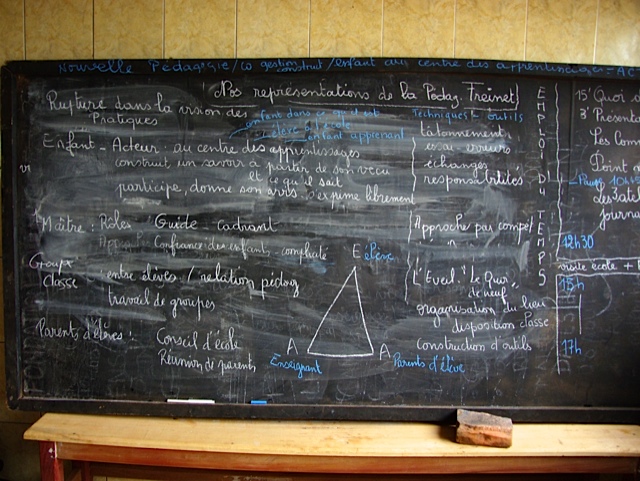 Nouvelle Pédagogie/co gestion/enfant au centre des apprentissages
construit
Nos représentations de la Pédag. Freinet
Rupture dans la vision des
Pratiques
enfant dans ce qu'il est
élève à l'école
enfant apprenant
Enfant - Acteur : au centre des apprentissages
construit un savoir à partir de son vécu
et ce qu'il sait
participe, donne son avis, s'exprime librement
Maître : Rôles : Guide cadrant
Confiance des enfants - complicité
Groupe
classe
entre élèves / relation pédag
travail de groupes
Parents d'élèves :
Conseil d'école
Réunion de parents
E élève
A
Enseignant
A
Parents d'élève
Techniques & outils
tâtonnement
essais erreurs
échanges
responsabilités
Approche par compé
L'Eveil : "Le Quoi
de neuf"
organisation du lieu
disposition classe
Construction d'outils
EMPLOI DU TEMPS
15' Quoi
3' Présenta
Les
Point
Pause 10h45
Les atel
journa
12h30
visite école +
15h
17h